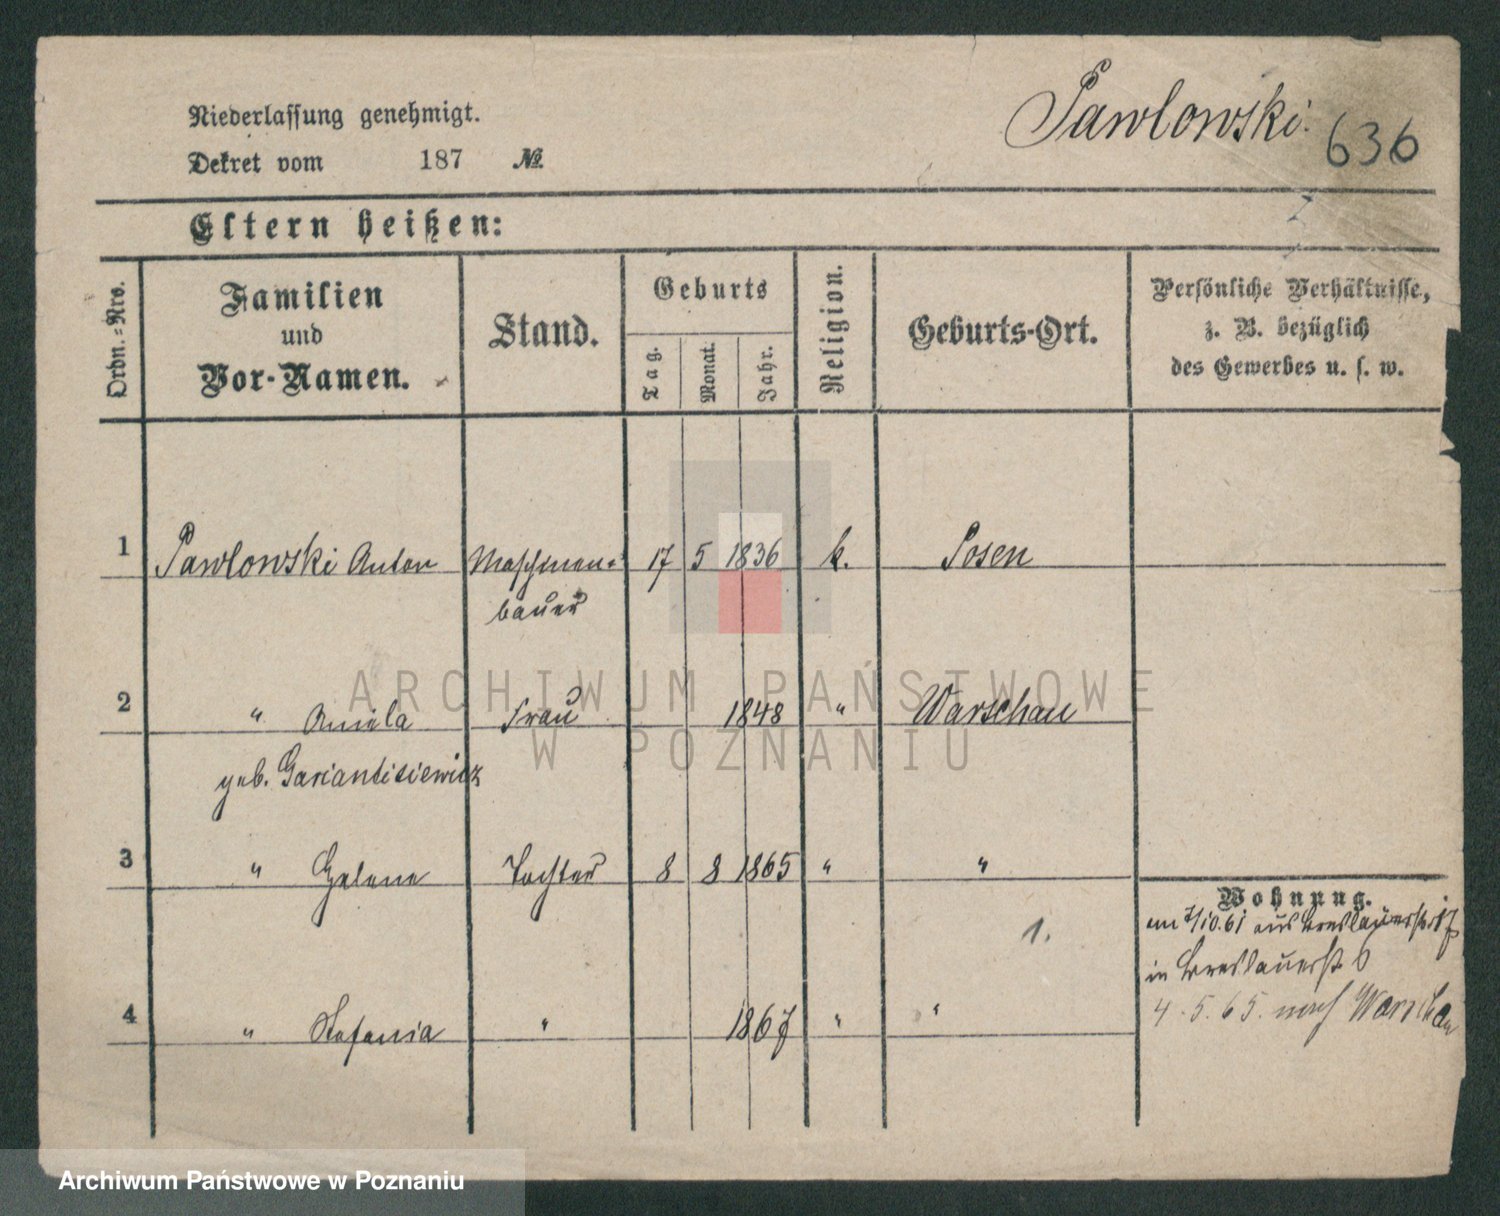 Niederlassung genehmigt.
Pawlowski.
636
Dekret vom 187 №
Eltern heißen:
Ordn.-Nro.
Familien
und
Vor-Namen.
Stand.
Geburts
Tag.
Monat.
Jahr.
Religion.
Geburts-Ort.
Persönliche Verhältnisse,
z. B. bezüglich
des Gewerbes u. s. w.
1 Pawlowski Anton Maschinen= 17 5 1836 k. Posen
bauer
2 " Amela Frau 1848 " Warschau
geb.
3 " Helene Tochter 8 8 1865 " "
Wohnung.
aus Breslauerstr 17
1.
in Breslauerst 6
4 " Stefania " 1867 " "
4.5.65. nach Warschau
ARCHIWUM PAŃSTWOWE
W POZNANIU
Archiwum Państwowe w Poznaniu